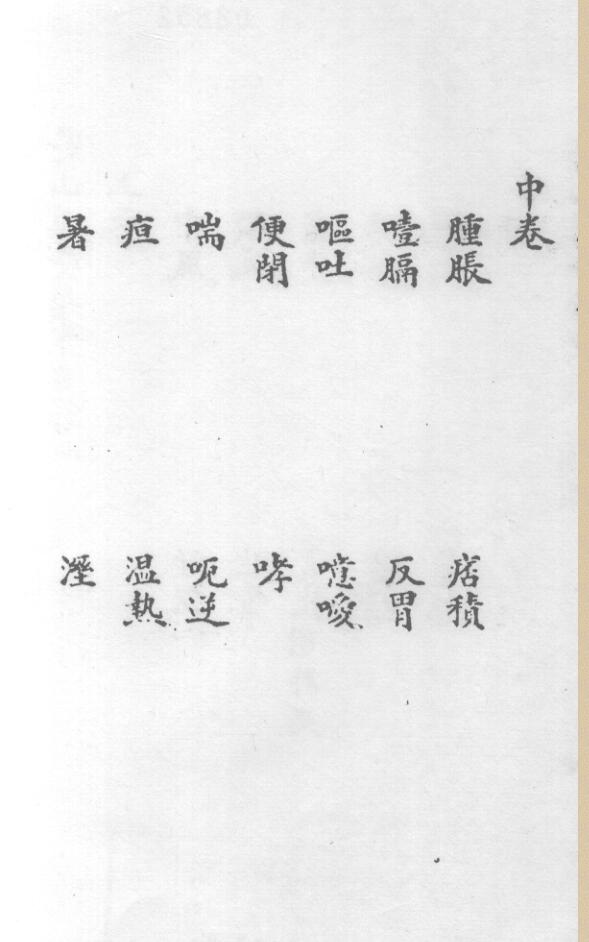 中卷
腫脹 痞積
噎膈 反胃
嘔吐 噫噯
便閉 哮
喘 呃逆
疸 温熱
暑 溼